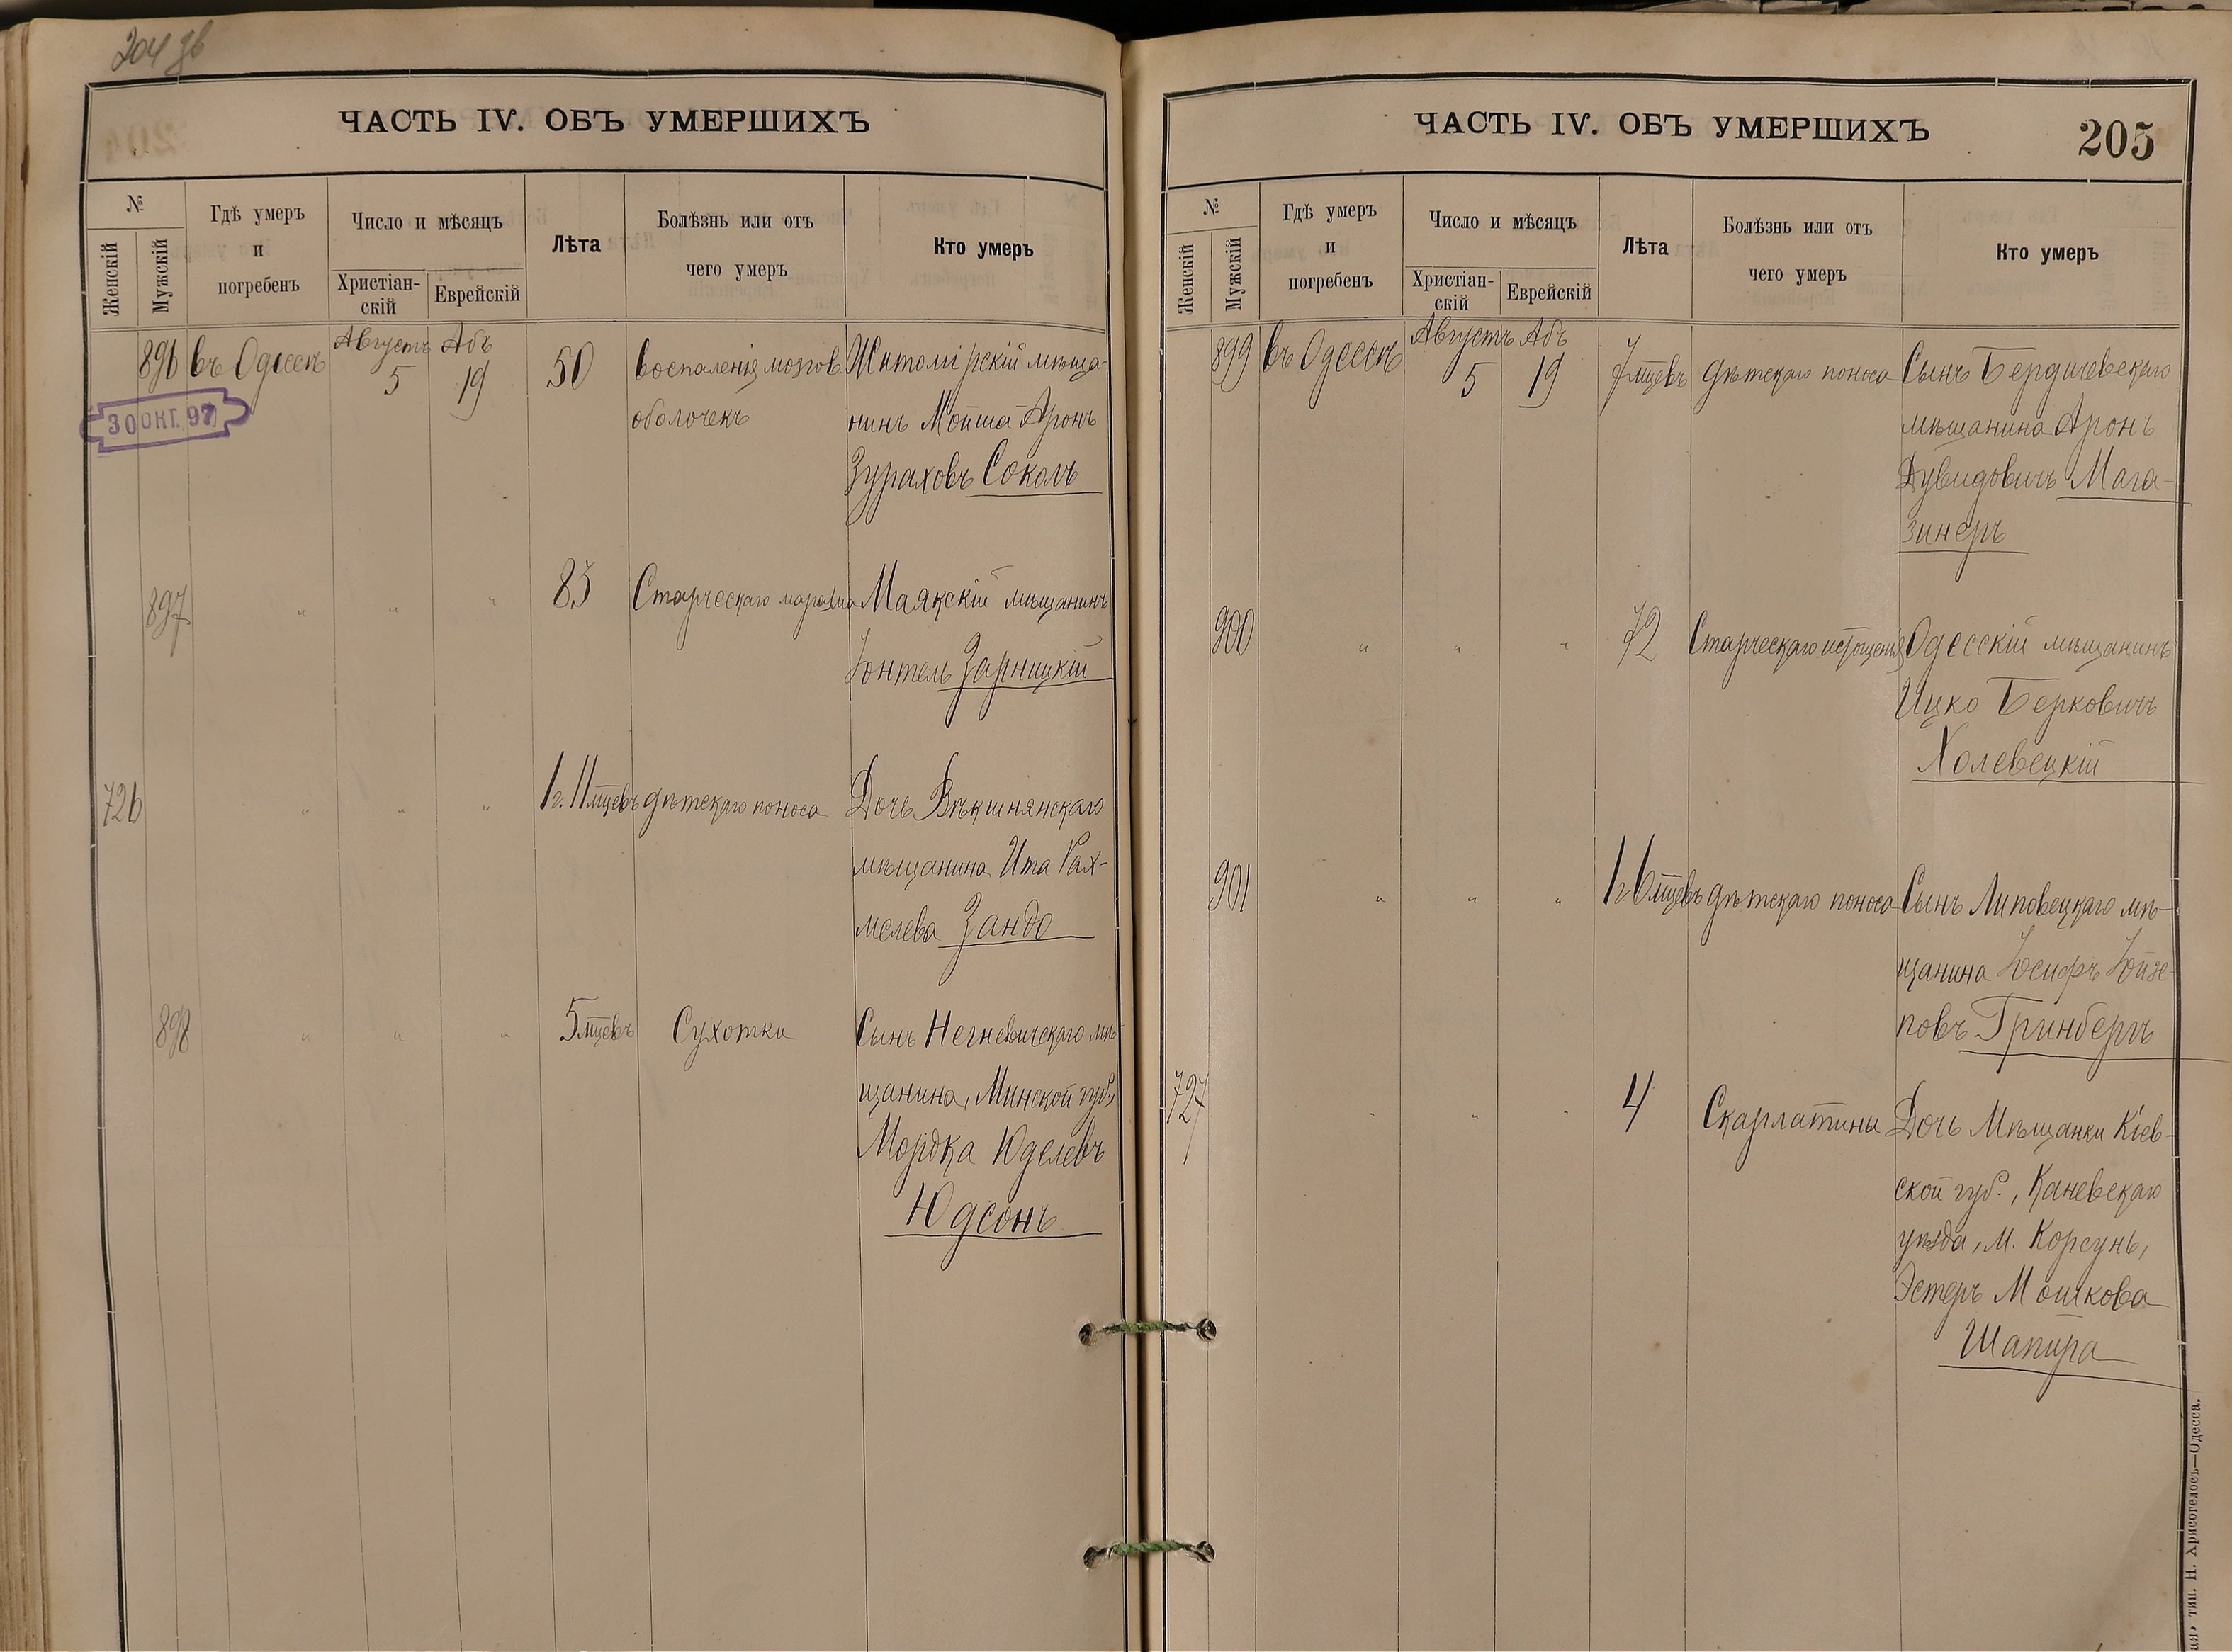 204 зв
ЧАСТЬ IV. ОБЪ УМЕРШИХЪ
№
Женскій
Мужскій
Гдѣ умеръ
и
погребенъ
Число и мѣсяцъ
Христіан-
скій
Еврейскій
Лѣта
Болѣзнь или отъ
чего умеръ
Кто умеръ
896 въ Одессѣ Августъ 5 Абъ 19 50 воспаленія мозгов. Житомірскій мѣща-
30 ОКТ. 97
оболочекъ нинъ Мойша Аронъ
Зураховъ Соколъ
897 " " " 83 Старческаго маразма Маякскій мѣщанинъ
Іонтель Зарницкій
726 " " " 1 г. 11 мцевъ дѣтскаго поноса Дочь Вѣкшнянскаго
мѣщанина Ита Рах-
мелева Зандо
898 " " " 5 мцевъ Сухотки Сынъ Негневичскаго мѣ-
щанина, Минской губ.,
Мордка Юделевъ
Юдсонъ
ЧАСТЬ IV. ОБЪ УМЕРШИХЪ
205
№
Женскій
Мужскій
Гдѣ умеръ
и
погребенъ
Число и мѣсяцъ
Христіан-
скій
Еврейскій
Лѣта
Болѣзнь или отъ
чего умеръ
Кто умеръ
899 въ Одессѣ Августъ 5 Абъ 19 7 мцевъ дѣтскаго поноса Сынъ Бердичевскаго
мѣщанина Аронъ
Дувидовичъ Мага-
зинеръ
900 " " " 72 Старческаго истощенія Одесскій мѣщанинъ
Ицко Берковичъ
Холевецкій
901 " " " 1 г. 6 мцевъ дѣтскаго поноса Сынъ Липовецкаго мѣ-
щанина Іосифъ Іойзе-
повъ Гринбергъ
727 " " " 4 Скарлатины Дочь Мѣщанки Кіев-
ской губ., Каневскаго
уѣзда, м. Корсунь,
Эстеръ Мошкова
Шапира
тип. Н. Хрисогелосъ—Одесса.